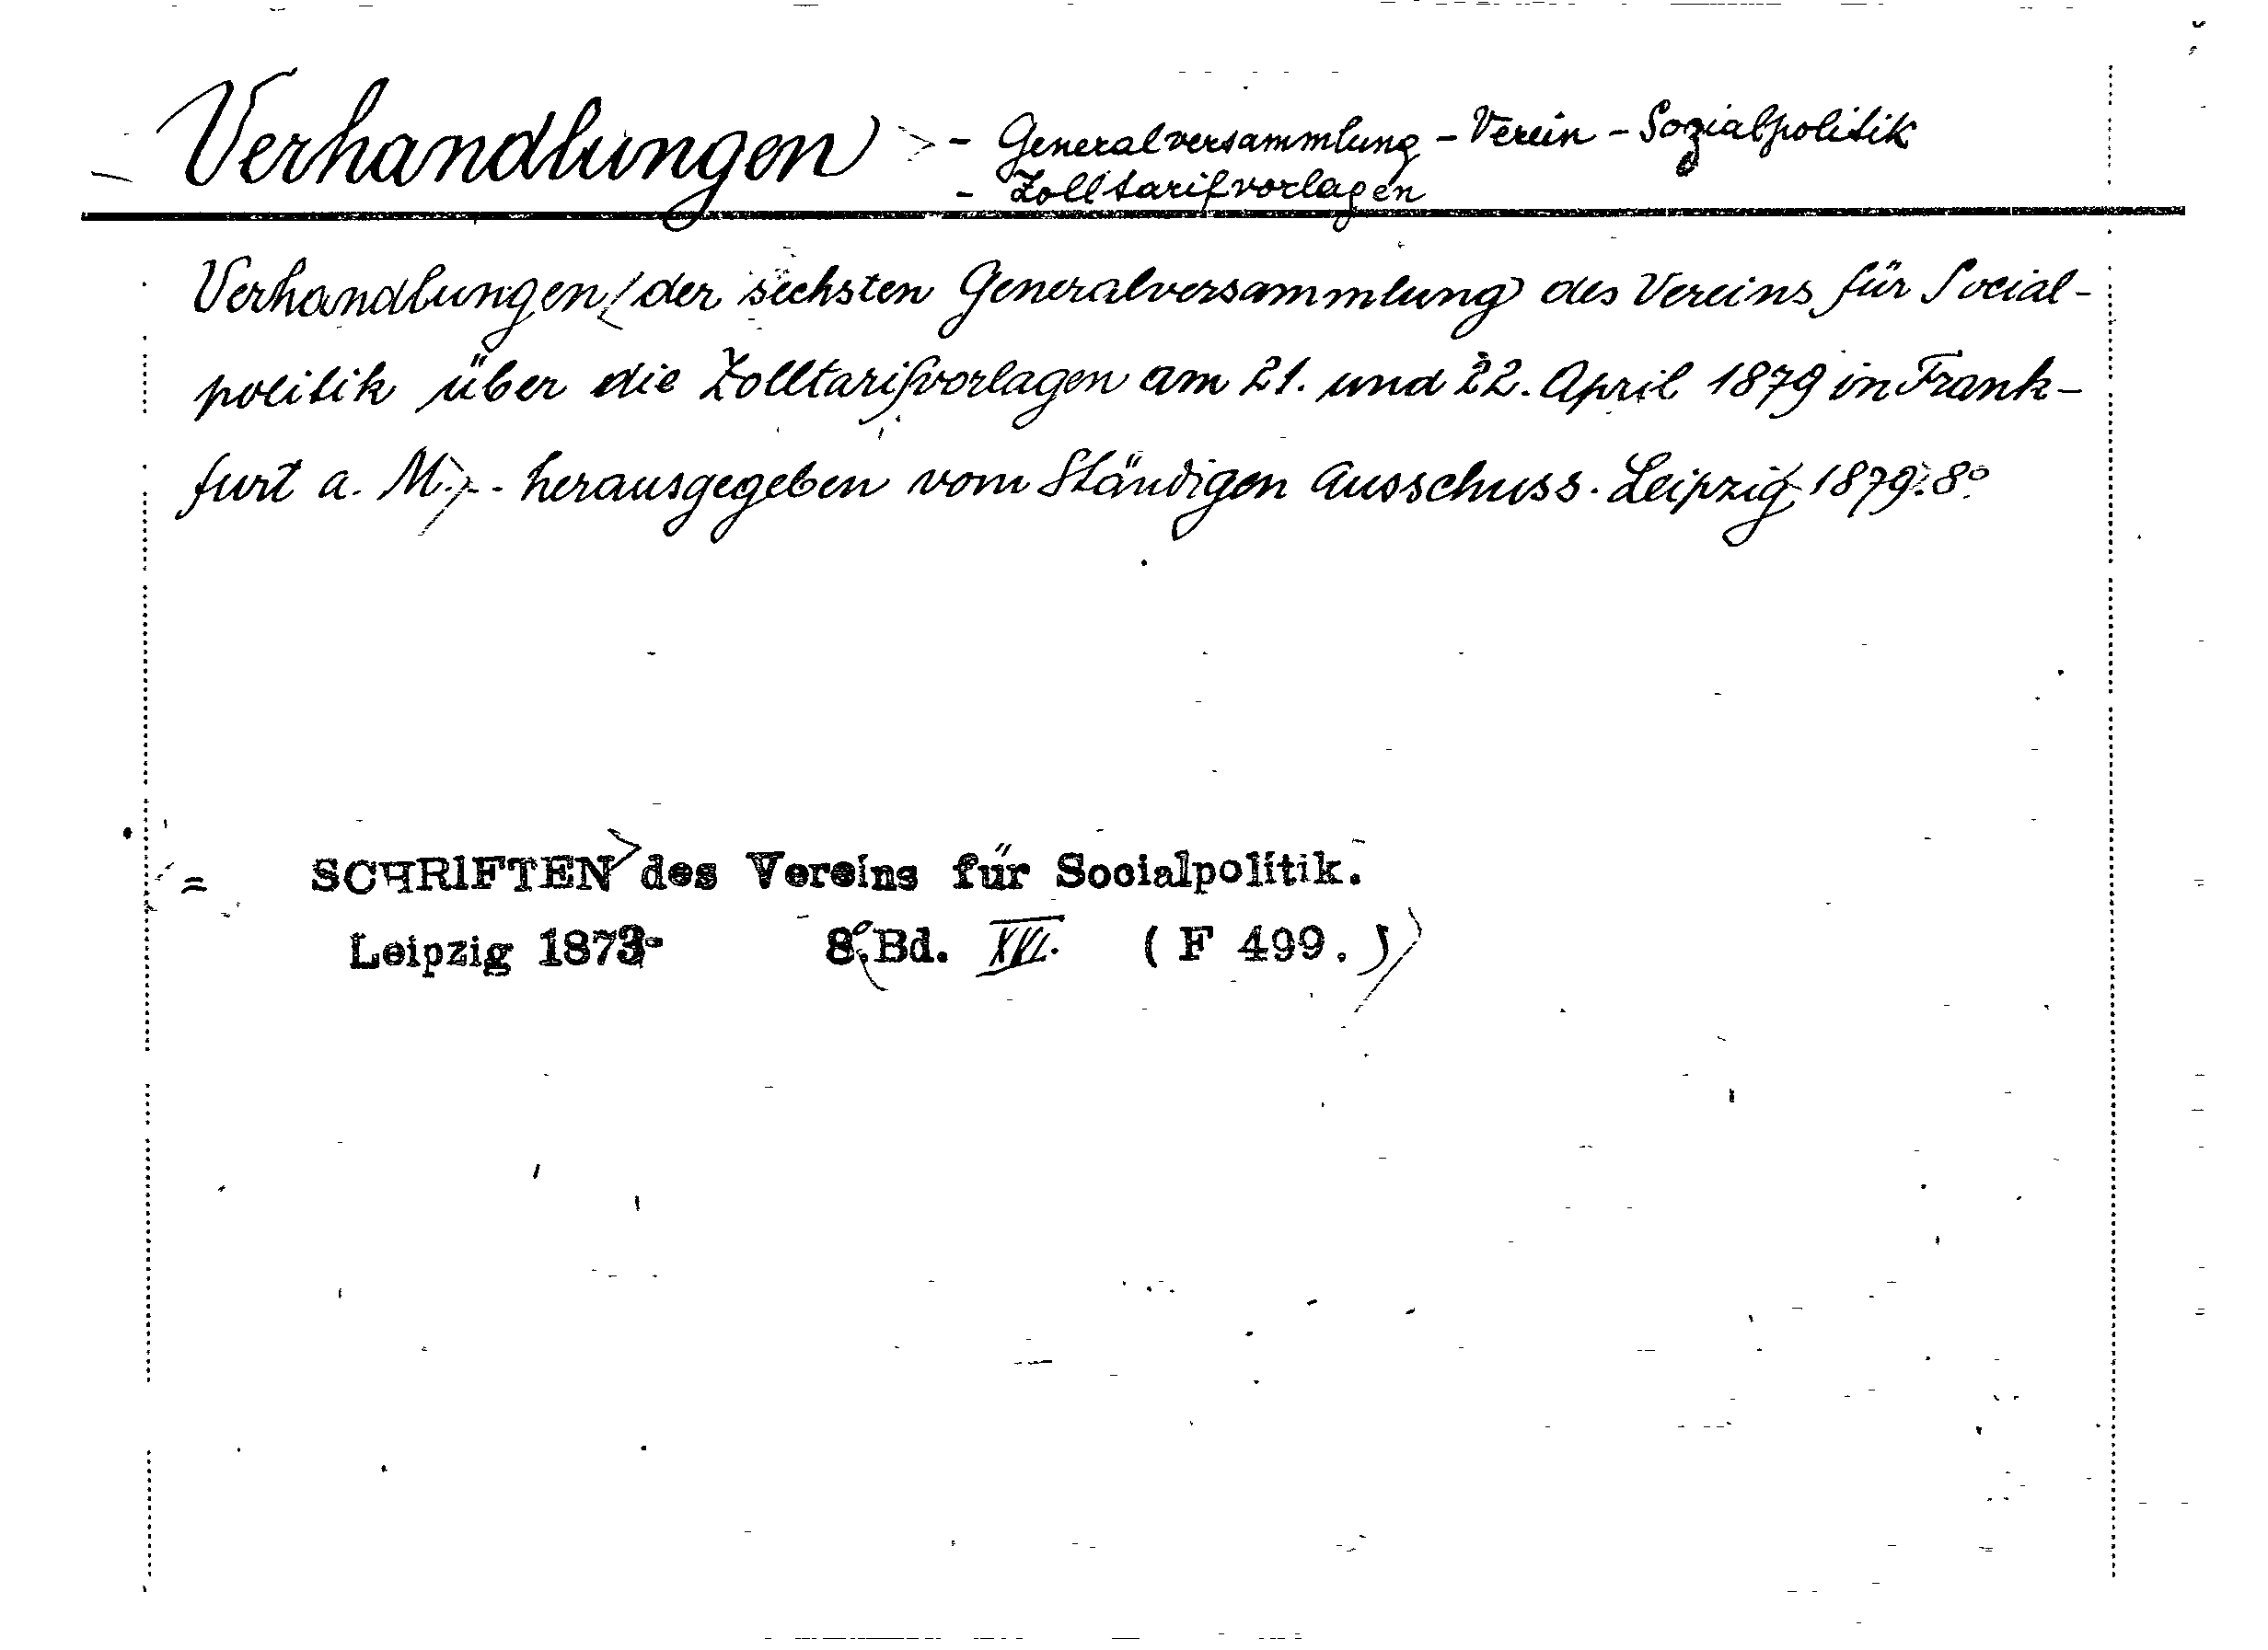 Verhandlungen - Generalversammlung - Verein - Sozialpolitik
- Zolltarifvorlagen
Verhandlungen der sechsten Generalversammlung des Vereins für Social-
politik über die Zolltarifvorlagen am 21. und 22. April 1879 in Frank-
furt a. M. - herausgegeben vom Ständigen Ausschuss. Leipzig 1879. 8°.
= SCHRIFTEN des Vereins für Socialpolitik.
Leipzig 1873- 8°. Bd. XVI. ( F 499. )